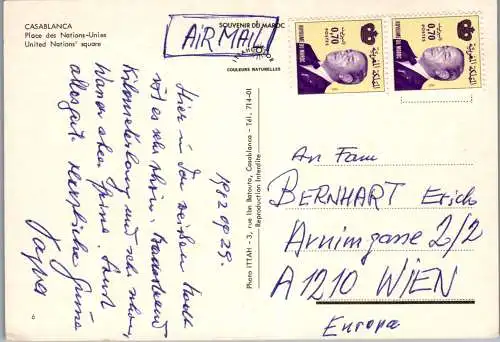 CASABLANCA
Place des Nations-Unies
United Nations' square
SOUVENIR DU MAROC
AIR MAIL
COULEURS NATURELLES
المملكة المغربية
0,70
POSTES
ROYAUME DU MAROC
المملكة المغربية
0,70
POSTES
ROYAUME DU MAROC
1982 09 29.
Hier in der weißen Stadt
ist es sehr schön. Badestrand
Kilometerlang und sehr schön,
Wasser aber prima. Sonst
alles gut. Herzliche Grüsse
Photo ITTAH - 3, rue Ibn Batouta, Casablanca - Tél. 714-01
Reproduction Interdite
An Fam
BERNHART Erich
Arnimgasse 2/2
A 1210 WIEN
Europa